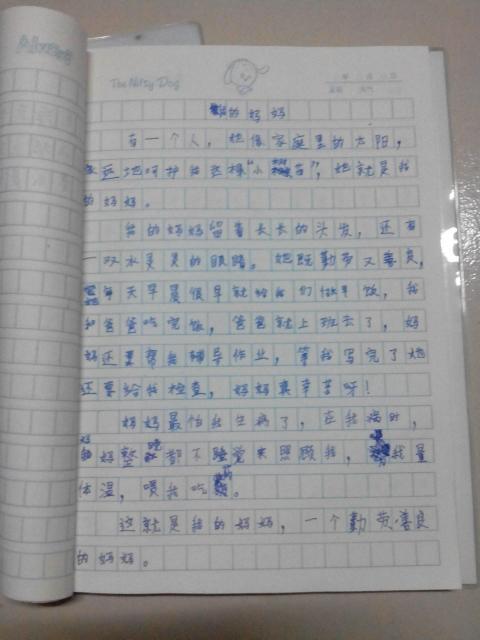 The Nitsy Dog
我的妈妈
有一个人，她像家庭里的太阳，
永远地呵护我这棵“小树苗”，她就是我
的妈妈。
我的妈妈留着长长的头发，还有
一双水灵灵的眼睛。她既勤劳又善良，
每天早晨很早就给我们做早饭，我
和爸爸吃完饭，爸爸就上班去了，妈
妈还要帮我辅导作业，等我写完了她
还要给我检查，妈妈真辛苦呀！
妈妈最怕我生病了，在我病时，
妈妈整晚都不睡觉来照顾我，我量
体温，喂我吃药。
这就是我的妈妈，一个勤劳善良
的妈妈。